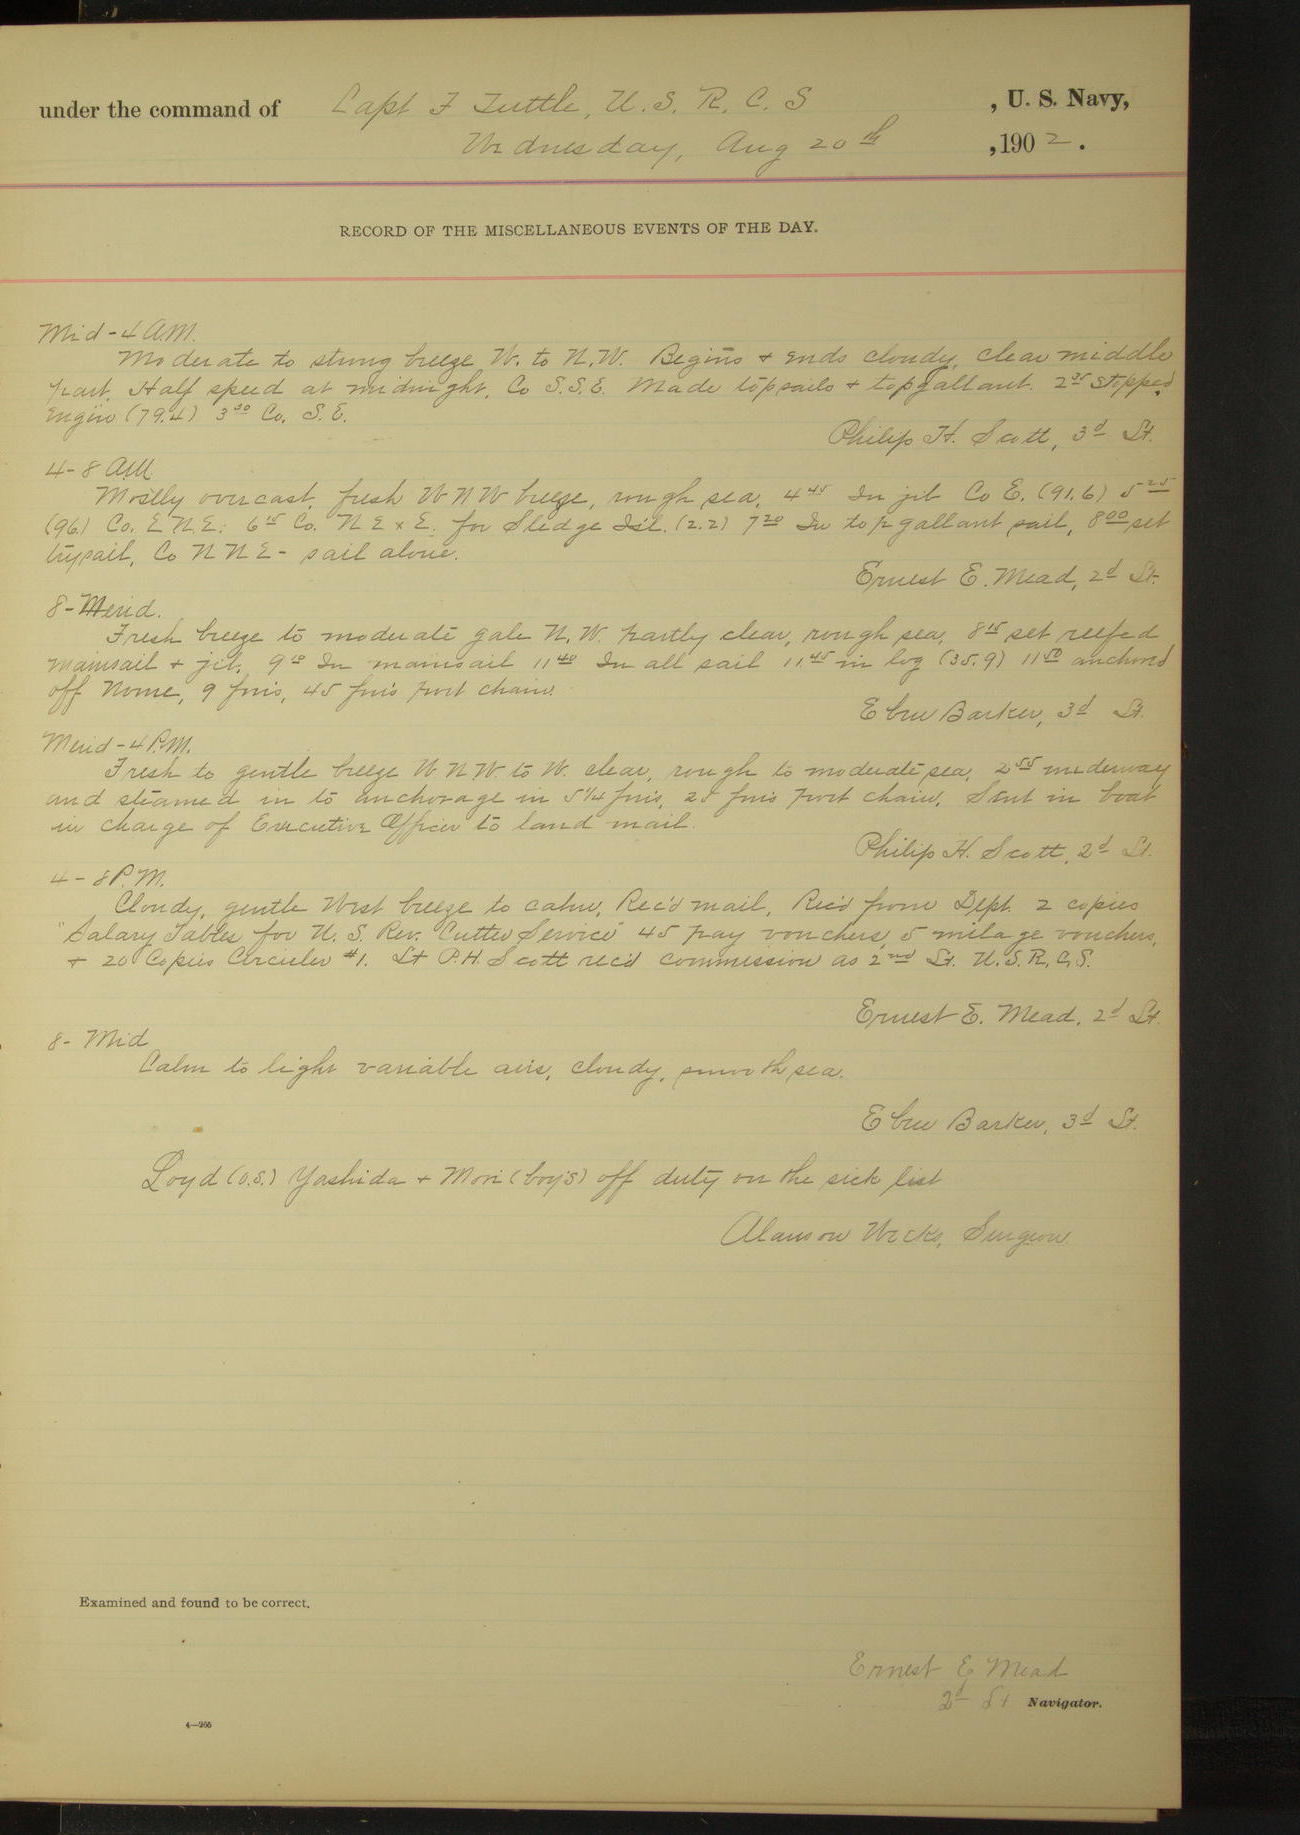 under the command of Capt F Tuttle, U. S. R. C. S , U. S. Navy,
Wednesday, Aug 20th , 1902 .
RECORD OF THE MISCELLANEOUS EVENTS OF THE DAY.
Mid - 4 A.M.
Moderate to strong breeze W. to N.W. Begins + ends cloudy, clear middle
part. Half speed at midnight, Co S.S.E. Made topsails + topgallant. 2 35 Stopped
Engine (79.4) 3 30 Co. S.E.
Philip H. Scott, 3d Lt.
4 - 8 A.M.
Mostly overcast, fresh W N W breeze, rough sea, 4 45 In jib Co E. (91.6) 5 25
(96) Co. E N E. 6 15 Co. N E x E. for Sledge Isl. (2.2) 7 20 In topgallant sail, 8 00 set
trysail, Co N N E - sail alone.
Ernest E. Mead, 2d Lt.
8 - Merid.
Fresh breeze to moderate gale N. W. partly clear, rough sea, 8 15 set reefed
mainsail + jib, 9 10 In mainsail 11 40 In all sail 11 45 in log (35.9) 11 50 anchored
off Nome, 9 fms, 45 fms port chain.
Eben Barker, 3d Lt.
Merid - 4 P.M.
Fresh to gentle breeze W. N. W. to W. clear, rough to moderate sea, 2 55 underway
and steamed in to anchorage in 5 1/4 fms, 25 fms port chain, Sent in boat
in charge of Executive Officer to land mail.
Philip H. Scott, 2d Lt.
4 - 8 P.M.
Cloudy, gentle West breeze to calm, Rec'd mail, Rec'd from Dept. 2 copies
"Salary Tables for U. S. Rev. Cutter Service" 45 pay vouchers, 5 milage vouchers,
+ 20 Copies Circular #1. Lt P. H. Scott rec'd commission as 2nd Lt. U. S. R. C. S.
Ernest E. Mead, 2d Lt.
8 - Mid
Calm to light variable airs, cloudy, smooth sea.
Eben Barker, 3d Lt.
Loyd (O.S.) Yashida + Mori (boys) off duty on the sick list
Alanson Weeks, Surgeon.
Examined and found to be correct.
Ernest E Mead
2d Lt Navigator.
4—265